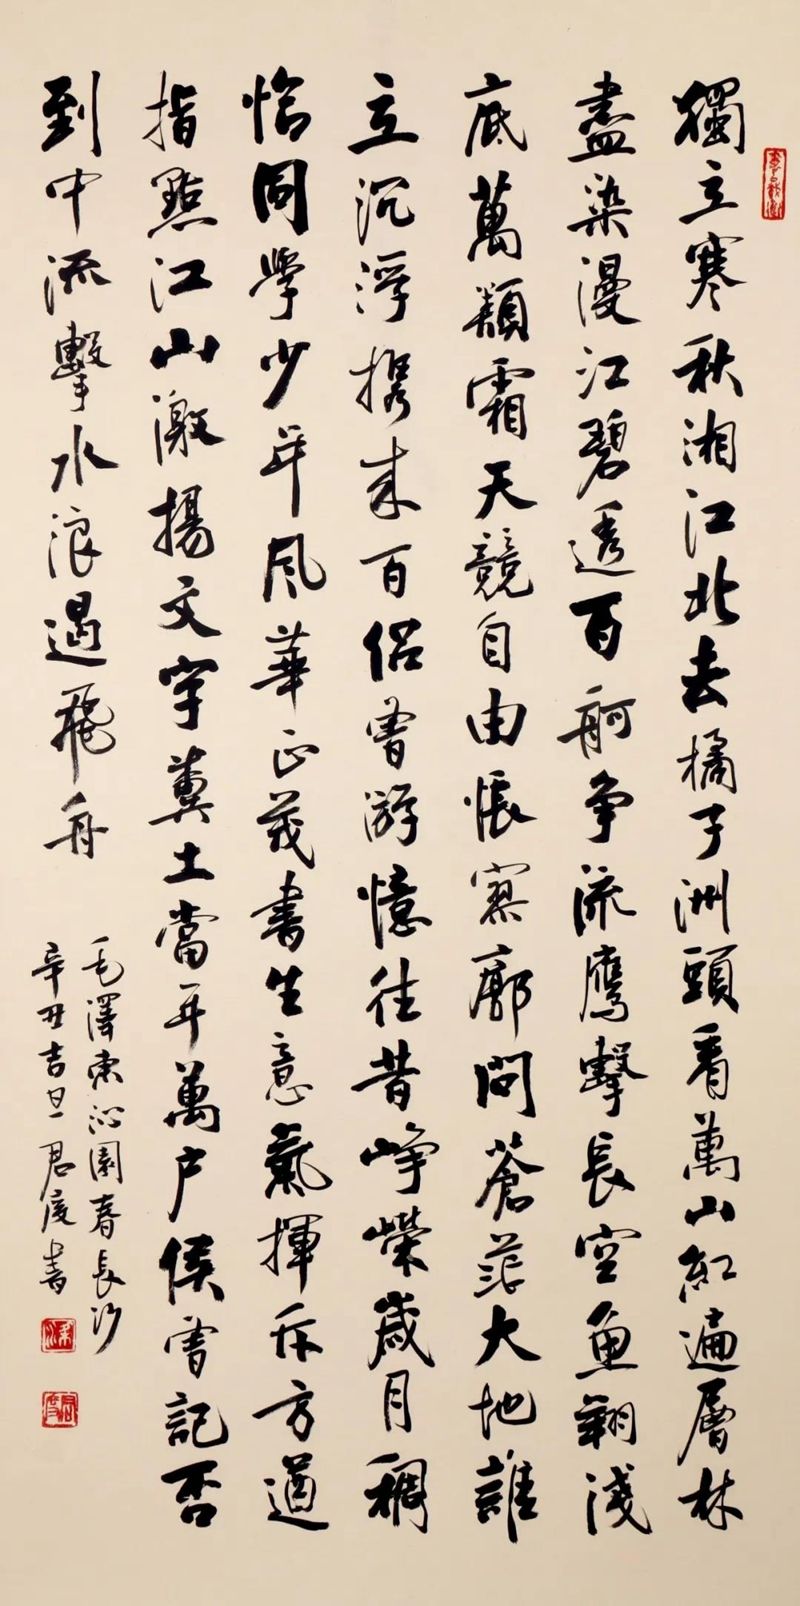 獨立寒秋湘江北去橘子洲頭看萬山紅遍層林
盡染漫江碧透百舸争流鷹擊長空魚翔淺
底萬類霜天競自由悵寥廓問蒼茫大地誰
主沉浮携來百侣曾游憶往昔峥嶸歲月稠
恰同學少年風華正茂書生意氣揮斥方遒
指點江山激揚文字糞土當年萬户侯曾記否
到中流擊水浪遏飛舟
毛澤東沁園春長沙
辛丑吉旦君度書
君度